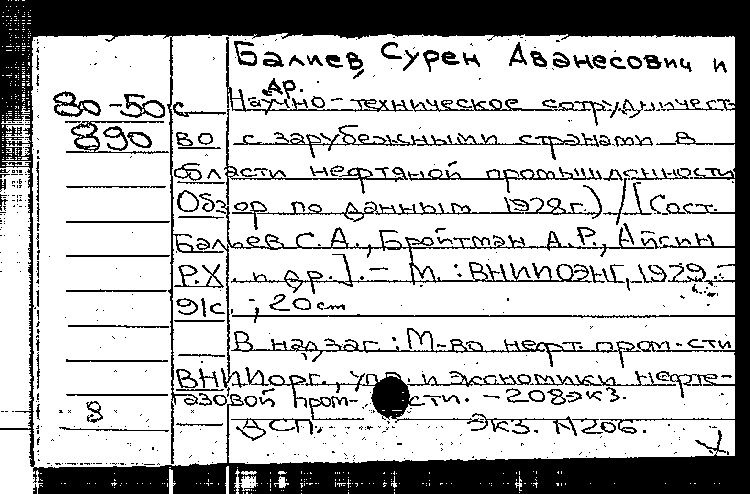 Балиев Сурен Аванесович и
др.
80-50с Научно-техническое сотрудничест
890 во с зарубежными странами в
области нефтяной промышленности
Обзор по данным 1978г.) /[Сост.
Балиев С.А., Бройтман А.Р., Айсин
Р.Х. и др.]. – М. : ВНИИОЭНГ, 1979. –
91с. ; 20см
В надзаг : М-во нефт. пром-сти
ВНИИорг., упр. и экономики нефте-
газовой пром- сти. – 208экз.
8 ДСП. Экз. N206.